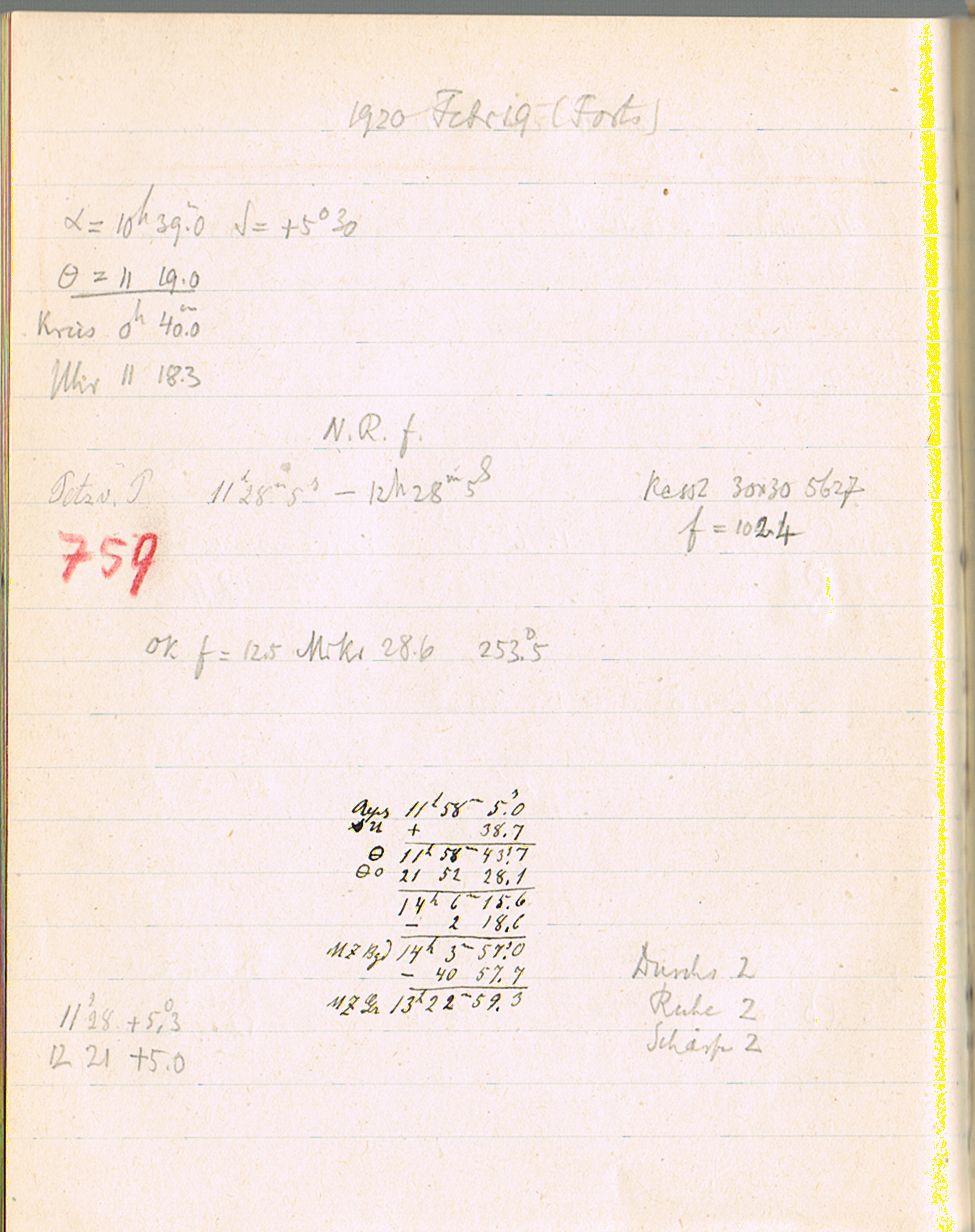 1920 Febr 19 (Forts)
α = 10h 39m.0 δ = +5°30
θ = 11 19.0
Kreis 0h 40m.0
Uhr 11 18.3
N. R. f.
Petzv. P 11h 28m 5s – 12h 28m 5s 30x30 5627
f = 102.4
759
Ok f = 12.5 Mikr 28.6 253°.5
11h 58m 5s.0
+ 38.7
θ 11h 58m 43s.7
θo 21 52 28.1
14h 6m 15.6
– 2 18.6
MZ Bgd 14h 3m 57s.0
– 40 57.7
MZ Gr 13h 22m 59.3
Durchs 2
Ruhe 2
Schärfe 2
11h 28 +5°.3
12 21 +5.0